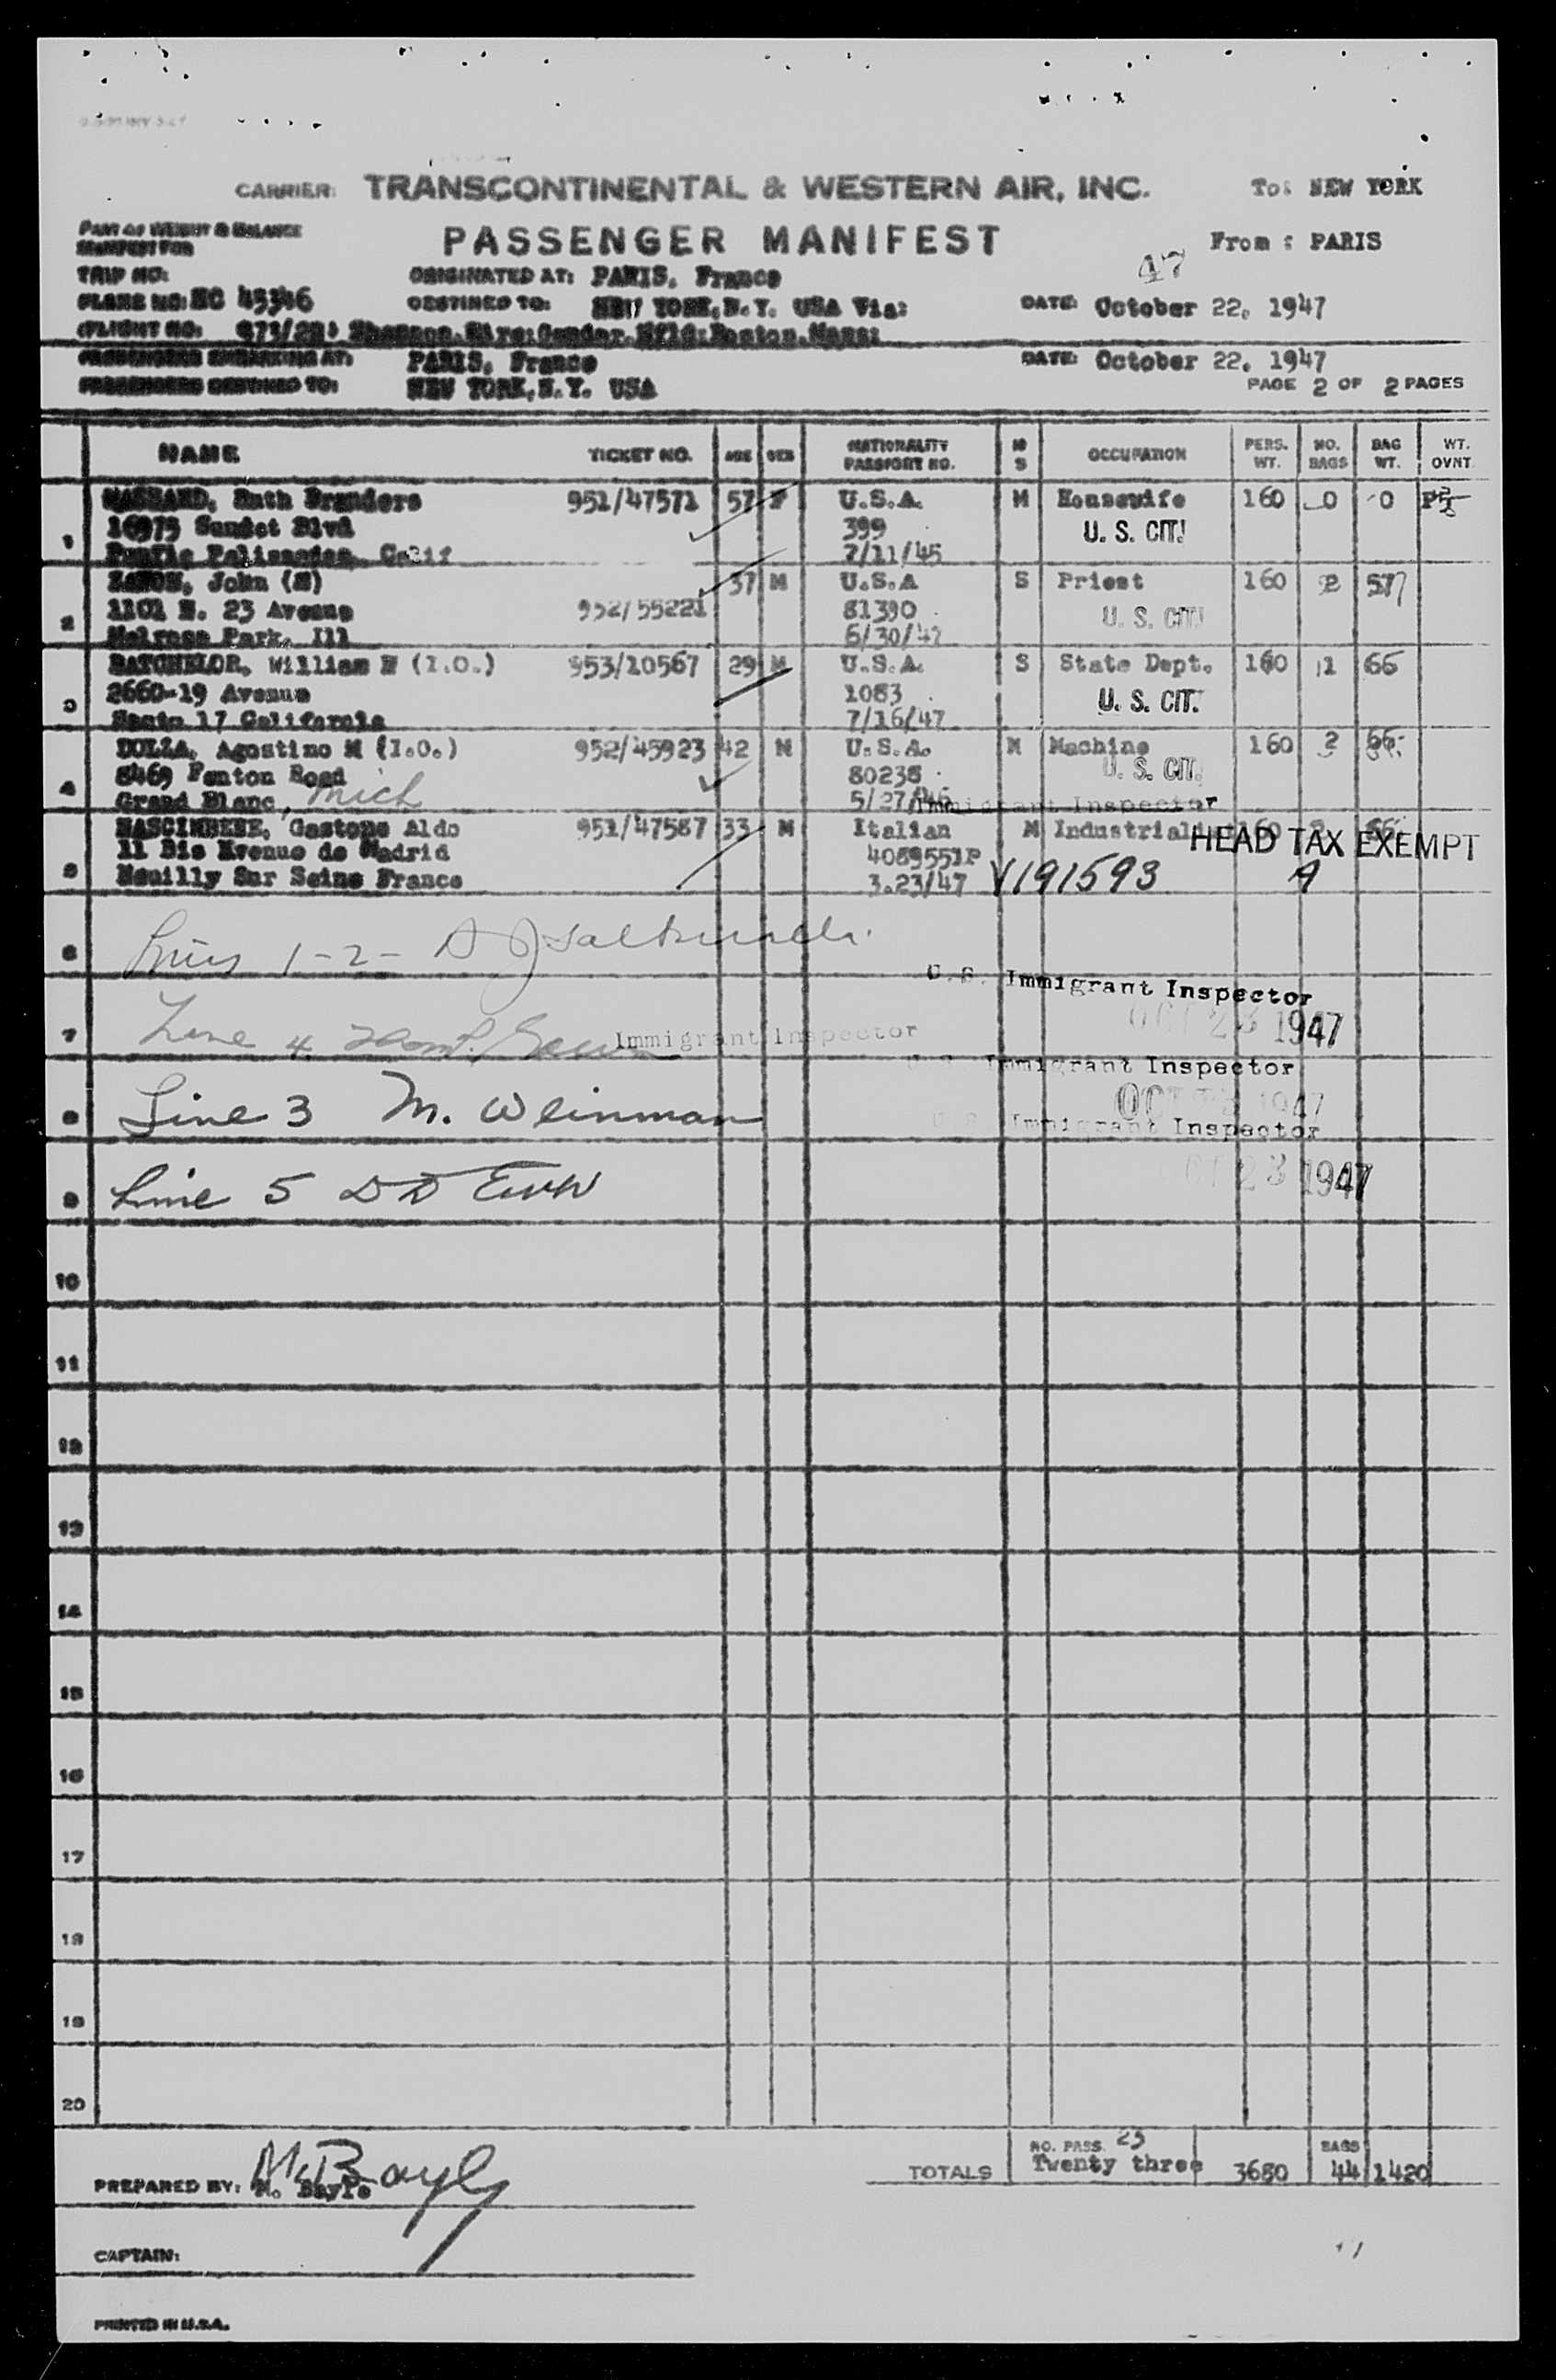 CARRIER: TRANSCONTINENTAL & WESTERN AIR, INC. To: NEW YORK
PART OF WEIGHT & BALANCE
MANIFEST FOR
PASSENGER MANIFEST
47
From : PARIS
TRIP NO:
ORIGINATED AT: PARIS, France
PLANE NO: NC 45346
DESTINED TO: NEW YORK, N.Y. USA Via:
DATE: October 22, 1947
FLIGHT NO. Shannon, Eire: Gander, Nfld: Boston, Mass:
PASSENGERS EMBARKING AT: PARIS, France
DATE: October 22, 1947
PASSENGERS DESTINED TO: NEW YORK, N.Y. USA
PAGE 2 OF 2 PAGES
NAME TICKET NO. AGE SEX NATIONALITY PASSPORT NO. M S OCCUPATION PERS. WT. NO. BAGS BAG WT. WT. OVNT
1 Ruth Branders 951/47571 57 F U.S.A. M Housewife 160 0 0
16975 Sunset Blvd 399 U. S. CIT.
Palisades, Calif 7/11/45
2 John (M) 37 M U.S.A S Priest 160 2 57
1101 N. 23 Avenue 952/55221 81390 U. S. CIT.
Melrose Park, Ill 6/30/47
3 BATCHELOR, William F (I.O.) 953/10567 29 M U.S.A. S State Dept. 160 1 66
2660-19 Avenue 1083 U. S. CIT.
17 California 7/16/47
4 DOLZA, Agostino M (I.O.) 952/45923 42 M U.S.A. M Machine 160 2 66
8469 Fenton Road 80236 U. S. CIT.
Grand Blanc, Mich 5/27/46 Immigrant Inspector
5 NASCIMBENE, Gastone Aldo 951/47587 33 M Italian M Industrialist 160 66
11 Bis Avenue de Madrid 4089551P HEAD TAX EXEMPT
Neuilly Sur Seine France 3.23/47 V191593 A
6 Lines 1-2-
U.S. Immigrant Inspector
OCT 23 1947
7 Line 4 Immigrant Inspector
U.S. Immigrant Inspector
OCT 23 1947
8 Line 3 M. Weinman
U.S. Immigrant Inspector
OCT 23 1947
9 Line 5
10
11
12
13
14
15
16
17
18
19
20
TOTALS NO. PASS. 23 Twenty three 3680 BAGS 44 1420
PREPARED BY: M. Bayle
CAPTAIN:
PRINTED IN U.S.A.